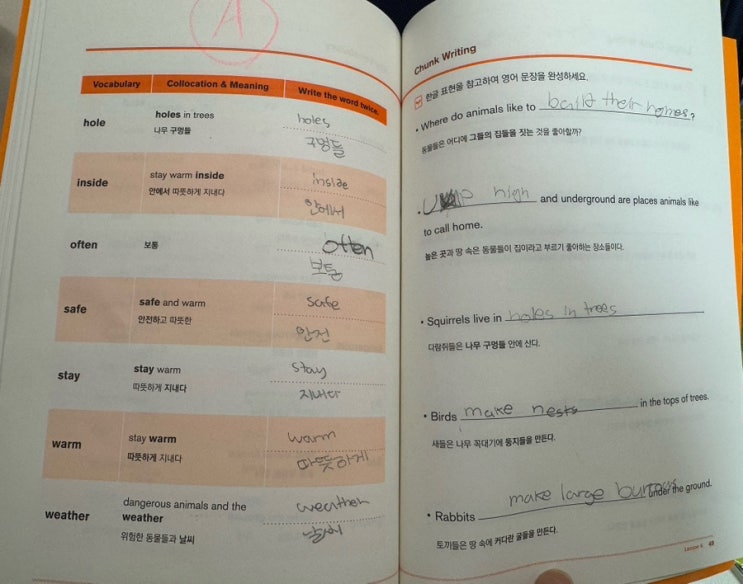 A
Vocabulary Collocation & Meaning Write the word twice.
hole
holes in trees
나무 구멍들
holes
구멍들
inside
stay warm inside
안에서 따뜻하게 지내다
inside
안에서
often
보통
often
보통
safe
safe and warm
안전하고 따뜻한
safe
안전
stay
stay warm
따뜻하게 지내다
stay
지내다
warm
stay warm
따뜻하게 지내다
warm
따뜻하게
weather
dangerous animals and the
weather
위험한 동물들과 날씨
weather
날씨
Chunk Writing
한글 표현을 참고하여 영어 문장을 완성하세요.
• Where do animals like to build their homes?
동물들은 어디에 그들의 집들을 짓는 것을 좋아할까?
• Up high and underground are places animals like
to call home.
높은 곳과 땅 속은 동물들이 집이라고 부르기 좋아하는 장소들이다.
• Squirrels live in holes in trees
다람쥐들은 나무 구멍들 안에 산다.
• Birds make nests in the tops of trees.
새들은 나무 꼭대기에 둥지들을 만든다.
• Rabbits make large burrows under the ground.
토끼들은 땅 속에 커다란 굴들을 만든다.
Lesson 6 49